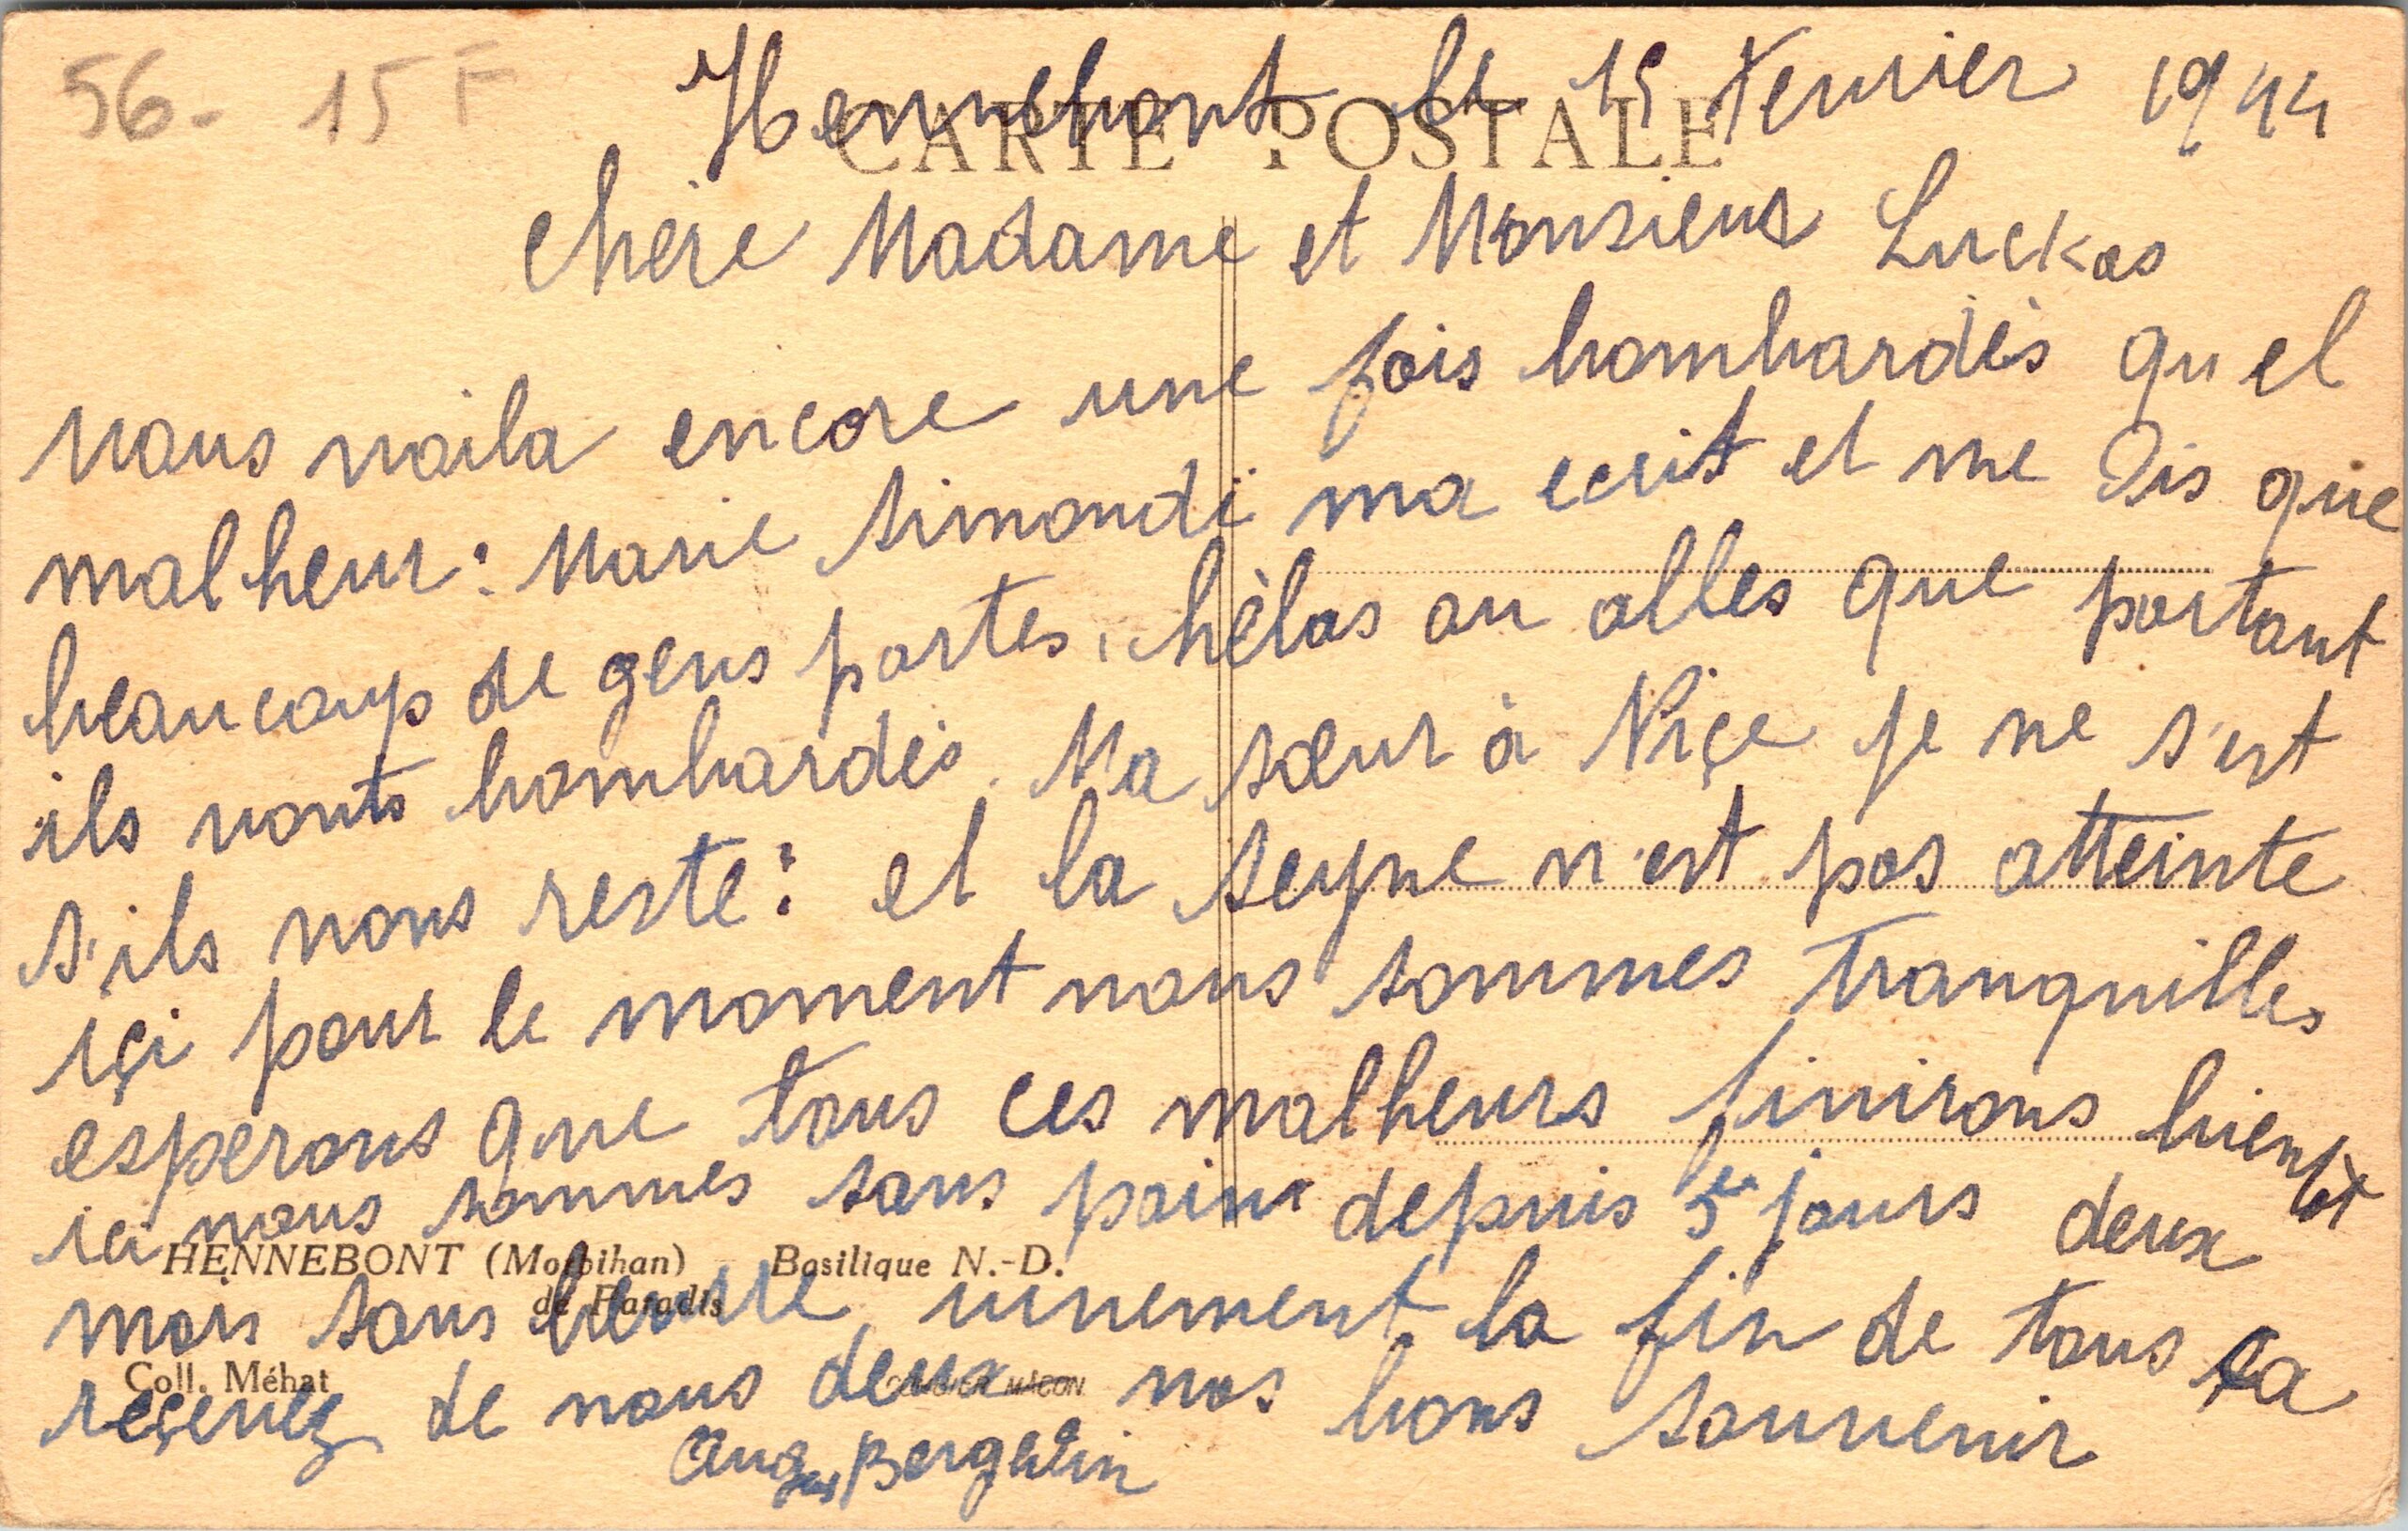 56- 15 F
Hennebont le 15 Fevrier 1944
CARTE POSTALE
chère Madame et Monsieur Luckas
nous voila encore une fois bombardés quel
malheur : Marie Simondi ma ecrit et me dis que
beaucoup de gens partes, hélas ou alles que partout
ils vonts bombardés. Ma sœur à Niçe je ne s'est
s'ils nous reste : et la seyne n'est pas atteinte
içi pour le moment nous sommes tranquilles
esperons que tous ces malheurs finirons bientot
ici nous sommes sans pain depuis 5 jours deux
HENNEBONT (Morbihan) Basilique N.-D.
de Paradis
mois sans beurre, vivement la fin de tous ca
Coll. Méhat
MACON
reçevez de nous deux nos bons souvenir